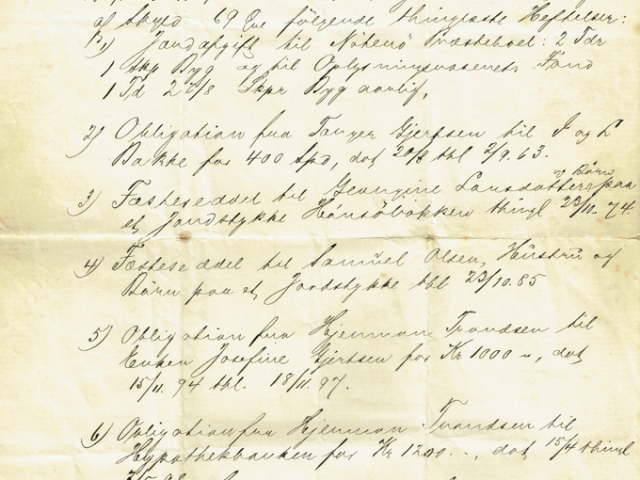 af Skyld 69 Øre følgende thinglæste Heftelser:
1) Jordafgift til Præstebol: 2 Tdr
1 Skp Byg og til Oplysningsvæsenets Fond
1 Td 2 2/8 Skpr Byg aarlig,
2) Obligation fra Tarjer Gjertsen til J og L
Bakke for 400 Spd, dat 20/8 tbl 2/9.63.
3) Fæsteseddel til Georgine Larsdatter og Børn paa
et Jordstykke thingl 23/11. 74.
4) Fæsteseddel til Samuel Olsen, Hustru og
Børn paa et Jordstykke tbl 23/10.85
5) Obligation fra Hjermon Trondsen til
Enken Josefine Gjertsen for Kr 1000 „, dat
15/11. 94 tbl. 18/11. 97.
6) Obligation fra Hjermon Trondsen til
Hypothekbanken for Kr 1200..-, dat 15/4 thingl